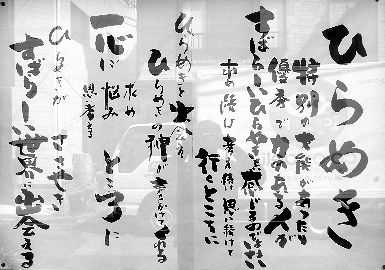 ひらめき
特別の才能があったり
優秀で力のある人が
すばらしいひらめきを感じるのではない
求め続け考え続け思い続けて
行くところに
ひらめきと出会え
ひらめきの神が声をかけてくれる
一心に
求め
悩み
思考する
ところに
ひらめきが
ささやき
すばらしい世界に出会える